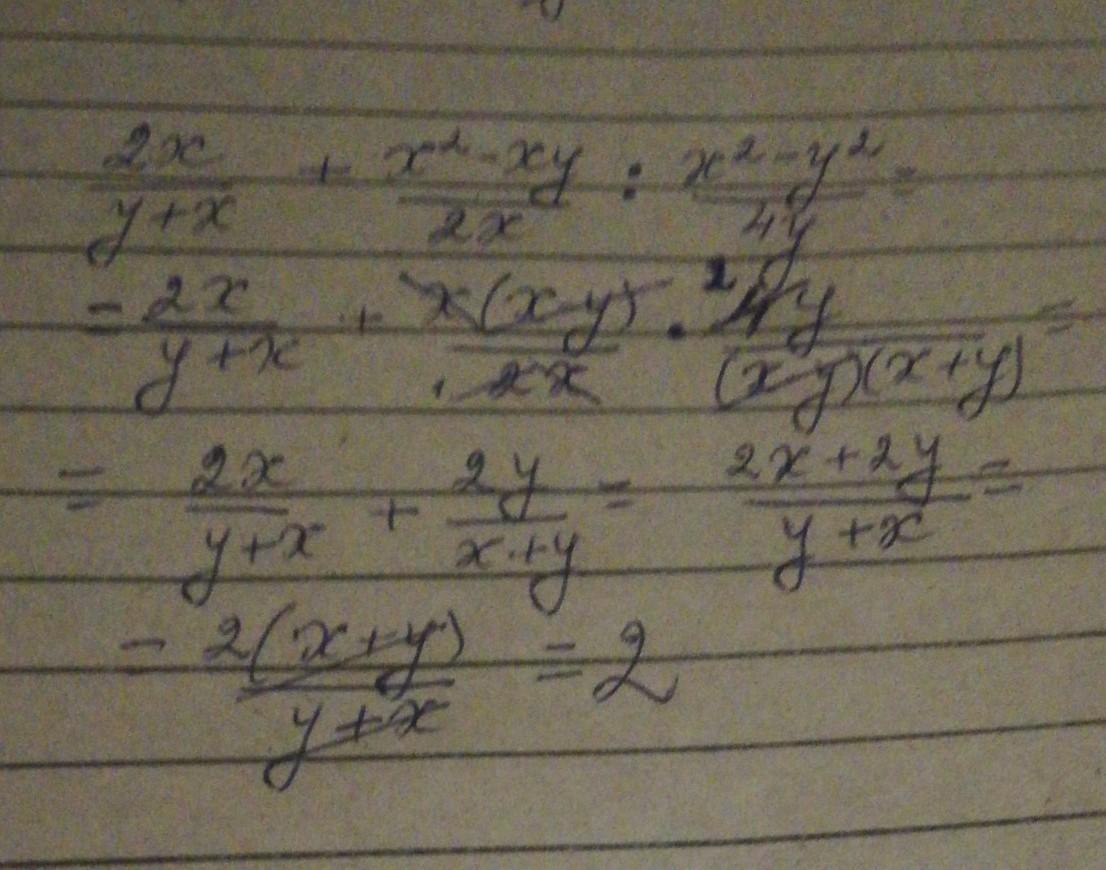 2x/(y+x) + (x²-xy)/2x : (x²-y²)/4y =
= 2x/(y+x) + x(x-y)/2x · ²4y/((x-y)(x+y)) =
= 2x/(y+x) + 2y/(x+y) = (2x+2y)/(y+x) =
= 2(x+y)/(y+x) = 2